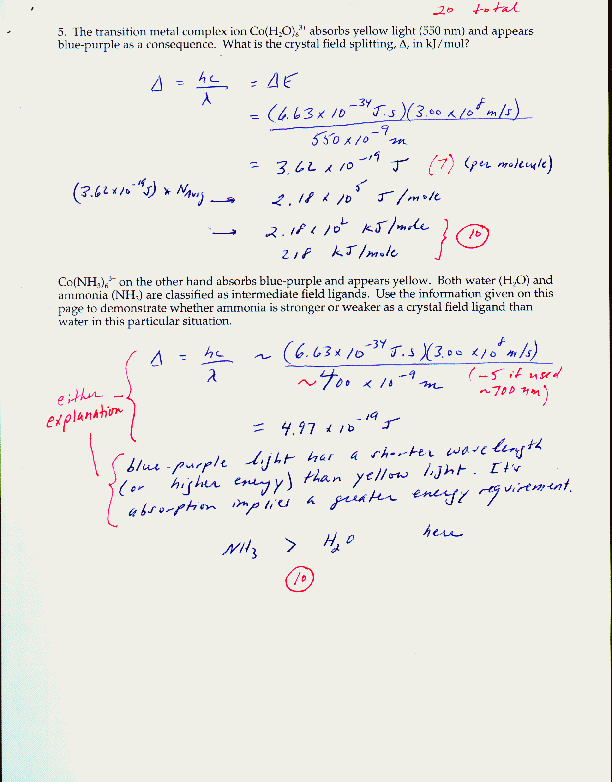 20 total
5. The transition metal complex ion Co(H₂O)₆³⁺ absorbs yellow light (550 nm) and appears
blue-purple as a consequence. What is the crystal field splitting, Δ, in kJ/mol?
Δ = hc/λ = ΔE
= (6.63 x 10⁻³⁴ J.s)(3.00 x 10⁸ m/s)
550 x 10⁻⁹ m
= 3.62 x 10⁻¹⁹ J (7) (per molecule)
(3.62 x 10⁻¹⁹ J) x N Avog → 2.18 x 10⁵ J/mole
→ 2.18 x 10² kJ/mole
218 kJ/mole (10)
Co(NH₃)₆³⁺ on the other hand absorbs blue-purple and appears yellow. Both water (H₂O) and
ammonia (NH₃) are classified as intermediate field ligands. Use the information given on this
page to demonstrate whether ammonia is stronger or weaker as a crystal field ligand than
water in this particular situation.
Δ = hc/λ ~ (6.63 x 10⁻³⁴ J.s)(3.00 x 10⁸ m/s)
~400 x 10⁻⁹ m (-5 if used
~700 nm)
either
explanation
= 4.97 x 10⁻¹⁹ J
blue-purple light has a shorter wavelength
(or higher energy) than yellow light. It's
absorption implies a greater energy requirement.
NH₃ > H₂O here
(10)